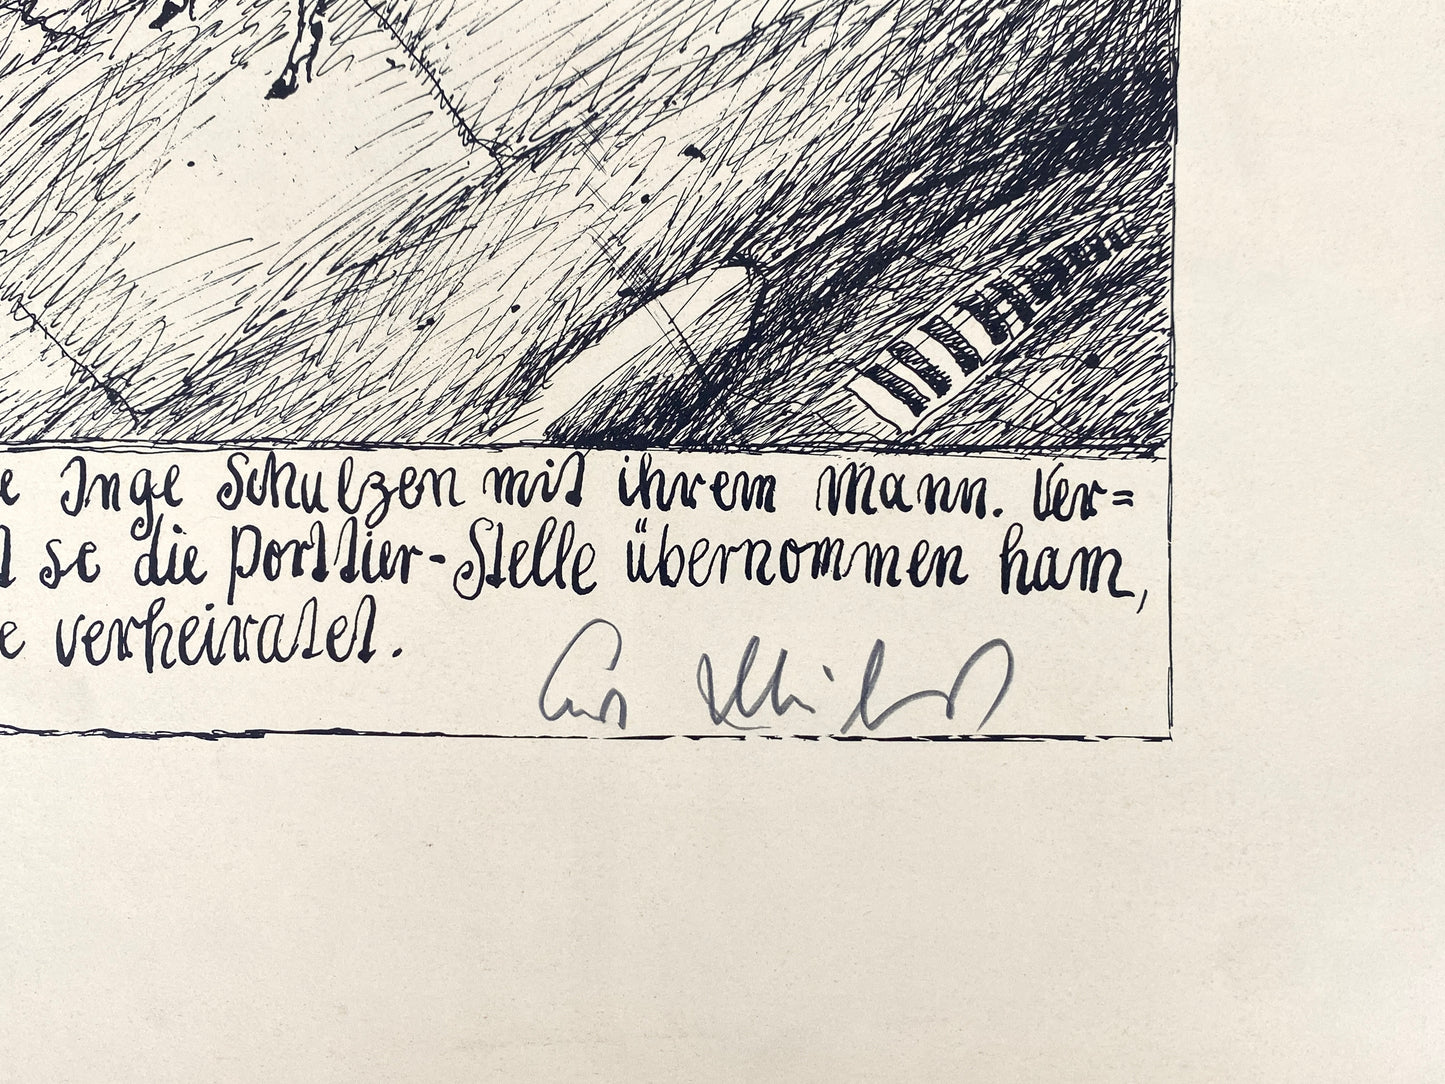 e Inge Schulzen mit ihrem Mann. Ver=
se die Porttier-Stelle übernommen ham,
e verheiratet.